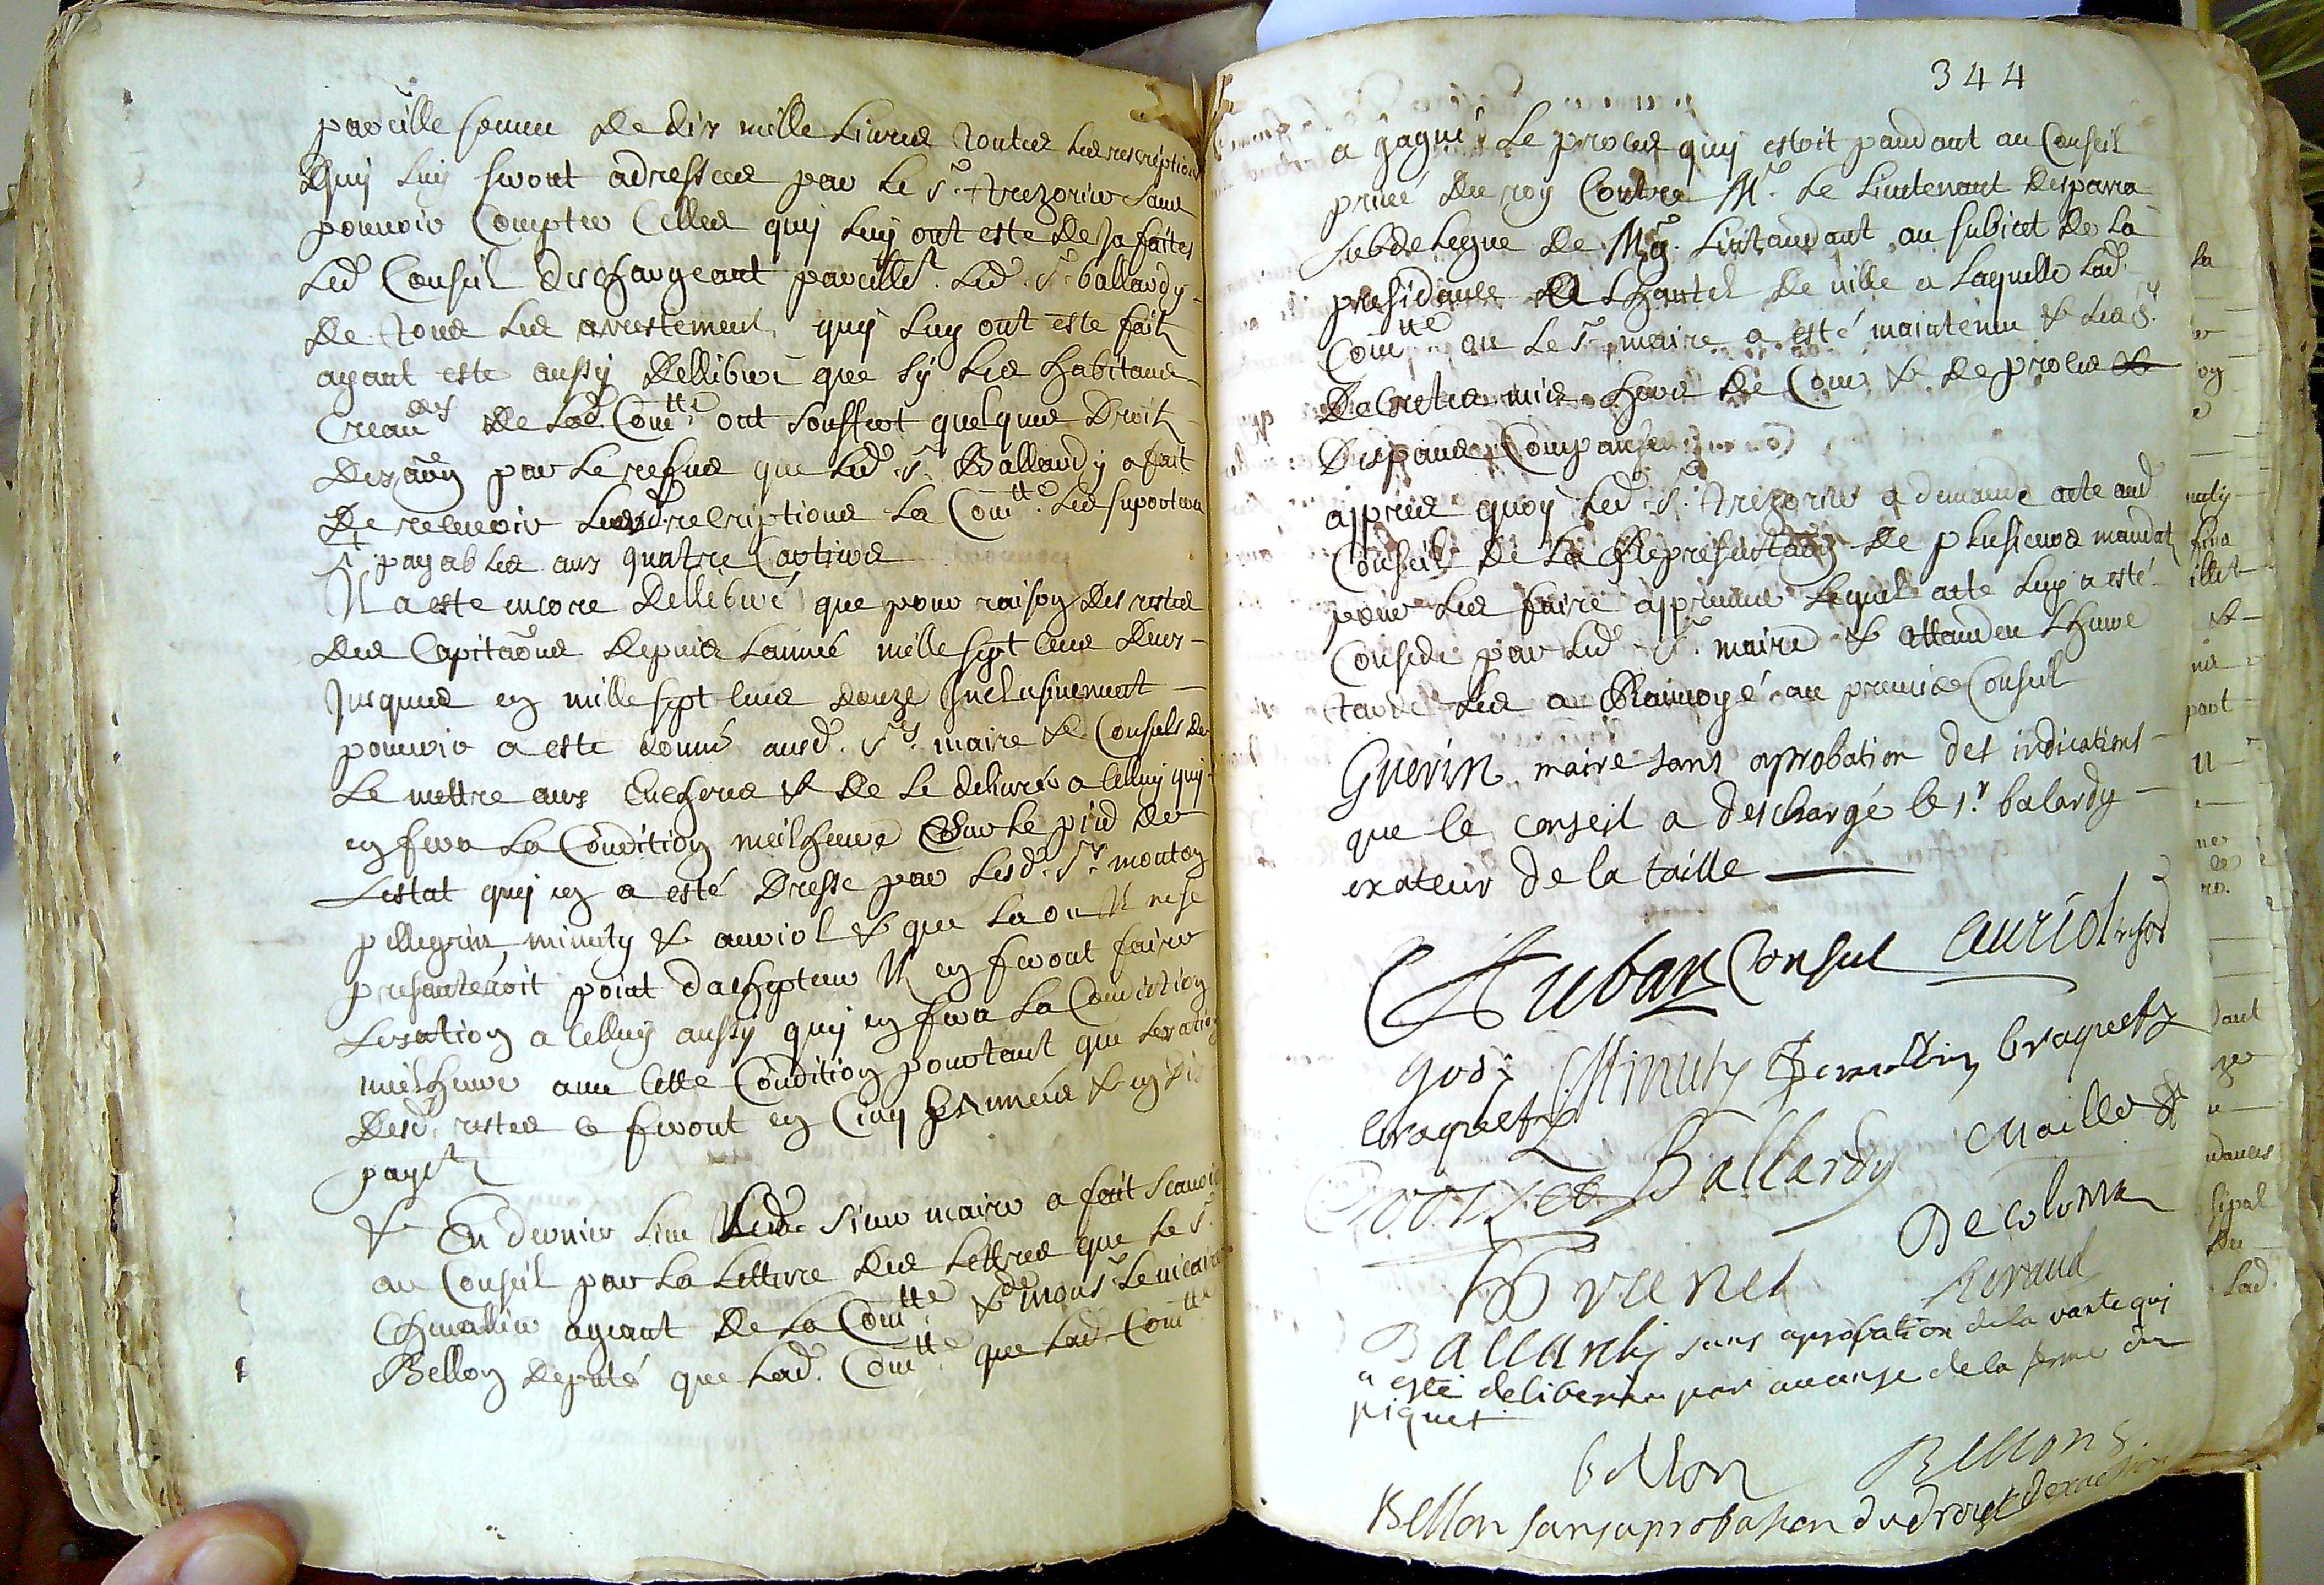 pareille somme de dix mille livres toutes les rescriptions
quy luy seront adressees par le sr. trezorier sans
pouvoir compter celles quy luy ont este desja faites
led conseil deschargeant pareillet. led. sr ballardy
de tous les arrestements quy luy ont este fait
ayant este aussy delliberé que sy les habitans
de lad. Comtté ont souffert quelques droit
par le refus que led. sr. Ballardy a fait
de recevoir lesd. rescriptions la Comtté. les suportera
payables aux quatre cartiers
Il a este encore delliberé que pour raison des restes
des capitaõns depuis lannée mille sept cens deux
jusques en mille sept cens douze inclusivement
pouvoir a este donné ausd. srs. maire & consuls de
le mettre aux encheres & de le delivrer a celluy quy
en fera la condition meilheure sur le pied de
lestat quy en a esté dresse par lesd. srs. mouton
pellegrin, minuty & auriol & que la ou il ne se
presanteroit point dachepteur il en feront faire
lexation a celluy aussy quy en fera la condition
meilheure avec cette condition pourtant que lexation
desd. restes se feront en cinq années & en dix
payet
& En dernier lieu led. sieur maire a fait scavoir
au conseil par la letture des lettres que le sr.
Chevallier ageant de la Comtté. & de monsr. le vicaire
Bellon deputé que lad. Comtté que lad. Comtté
344
a gagné le proces quy estoit pandant au conseil
privé du roy contre Mr. le lieutenant desparra
subdelegue de Mgr. lintandant au subiet de la
presidance de lhostel de ville a laquelle lad.
Comtté ou le sr. maire a esté maintenu & les srs.
mis hors de cour & de proces &
despans compansés
appres quoy led. sr. trezorier a demandé acte aud
conseil de la representaon de plusieurs mandat
pour les faire approuver lequel acte luy a esté
consedé par led. sr. maire & attandeu lheure
tarde les a ranvoyé au premier conseil
Guerin maire sans aprobation des indications
que le conseil a deschargé le sr. balardy
exateur de la taille
Auban Consul auriol
Minuty braquety
braquety Ballardy Maille
De colonia
Brunel
Ballardy sans aprobation de la vante quy
a este deliberee par avance de la ferme du
piquet
bellon Bellon
Bellon sans aprobasion du droit dexaction